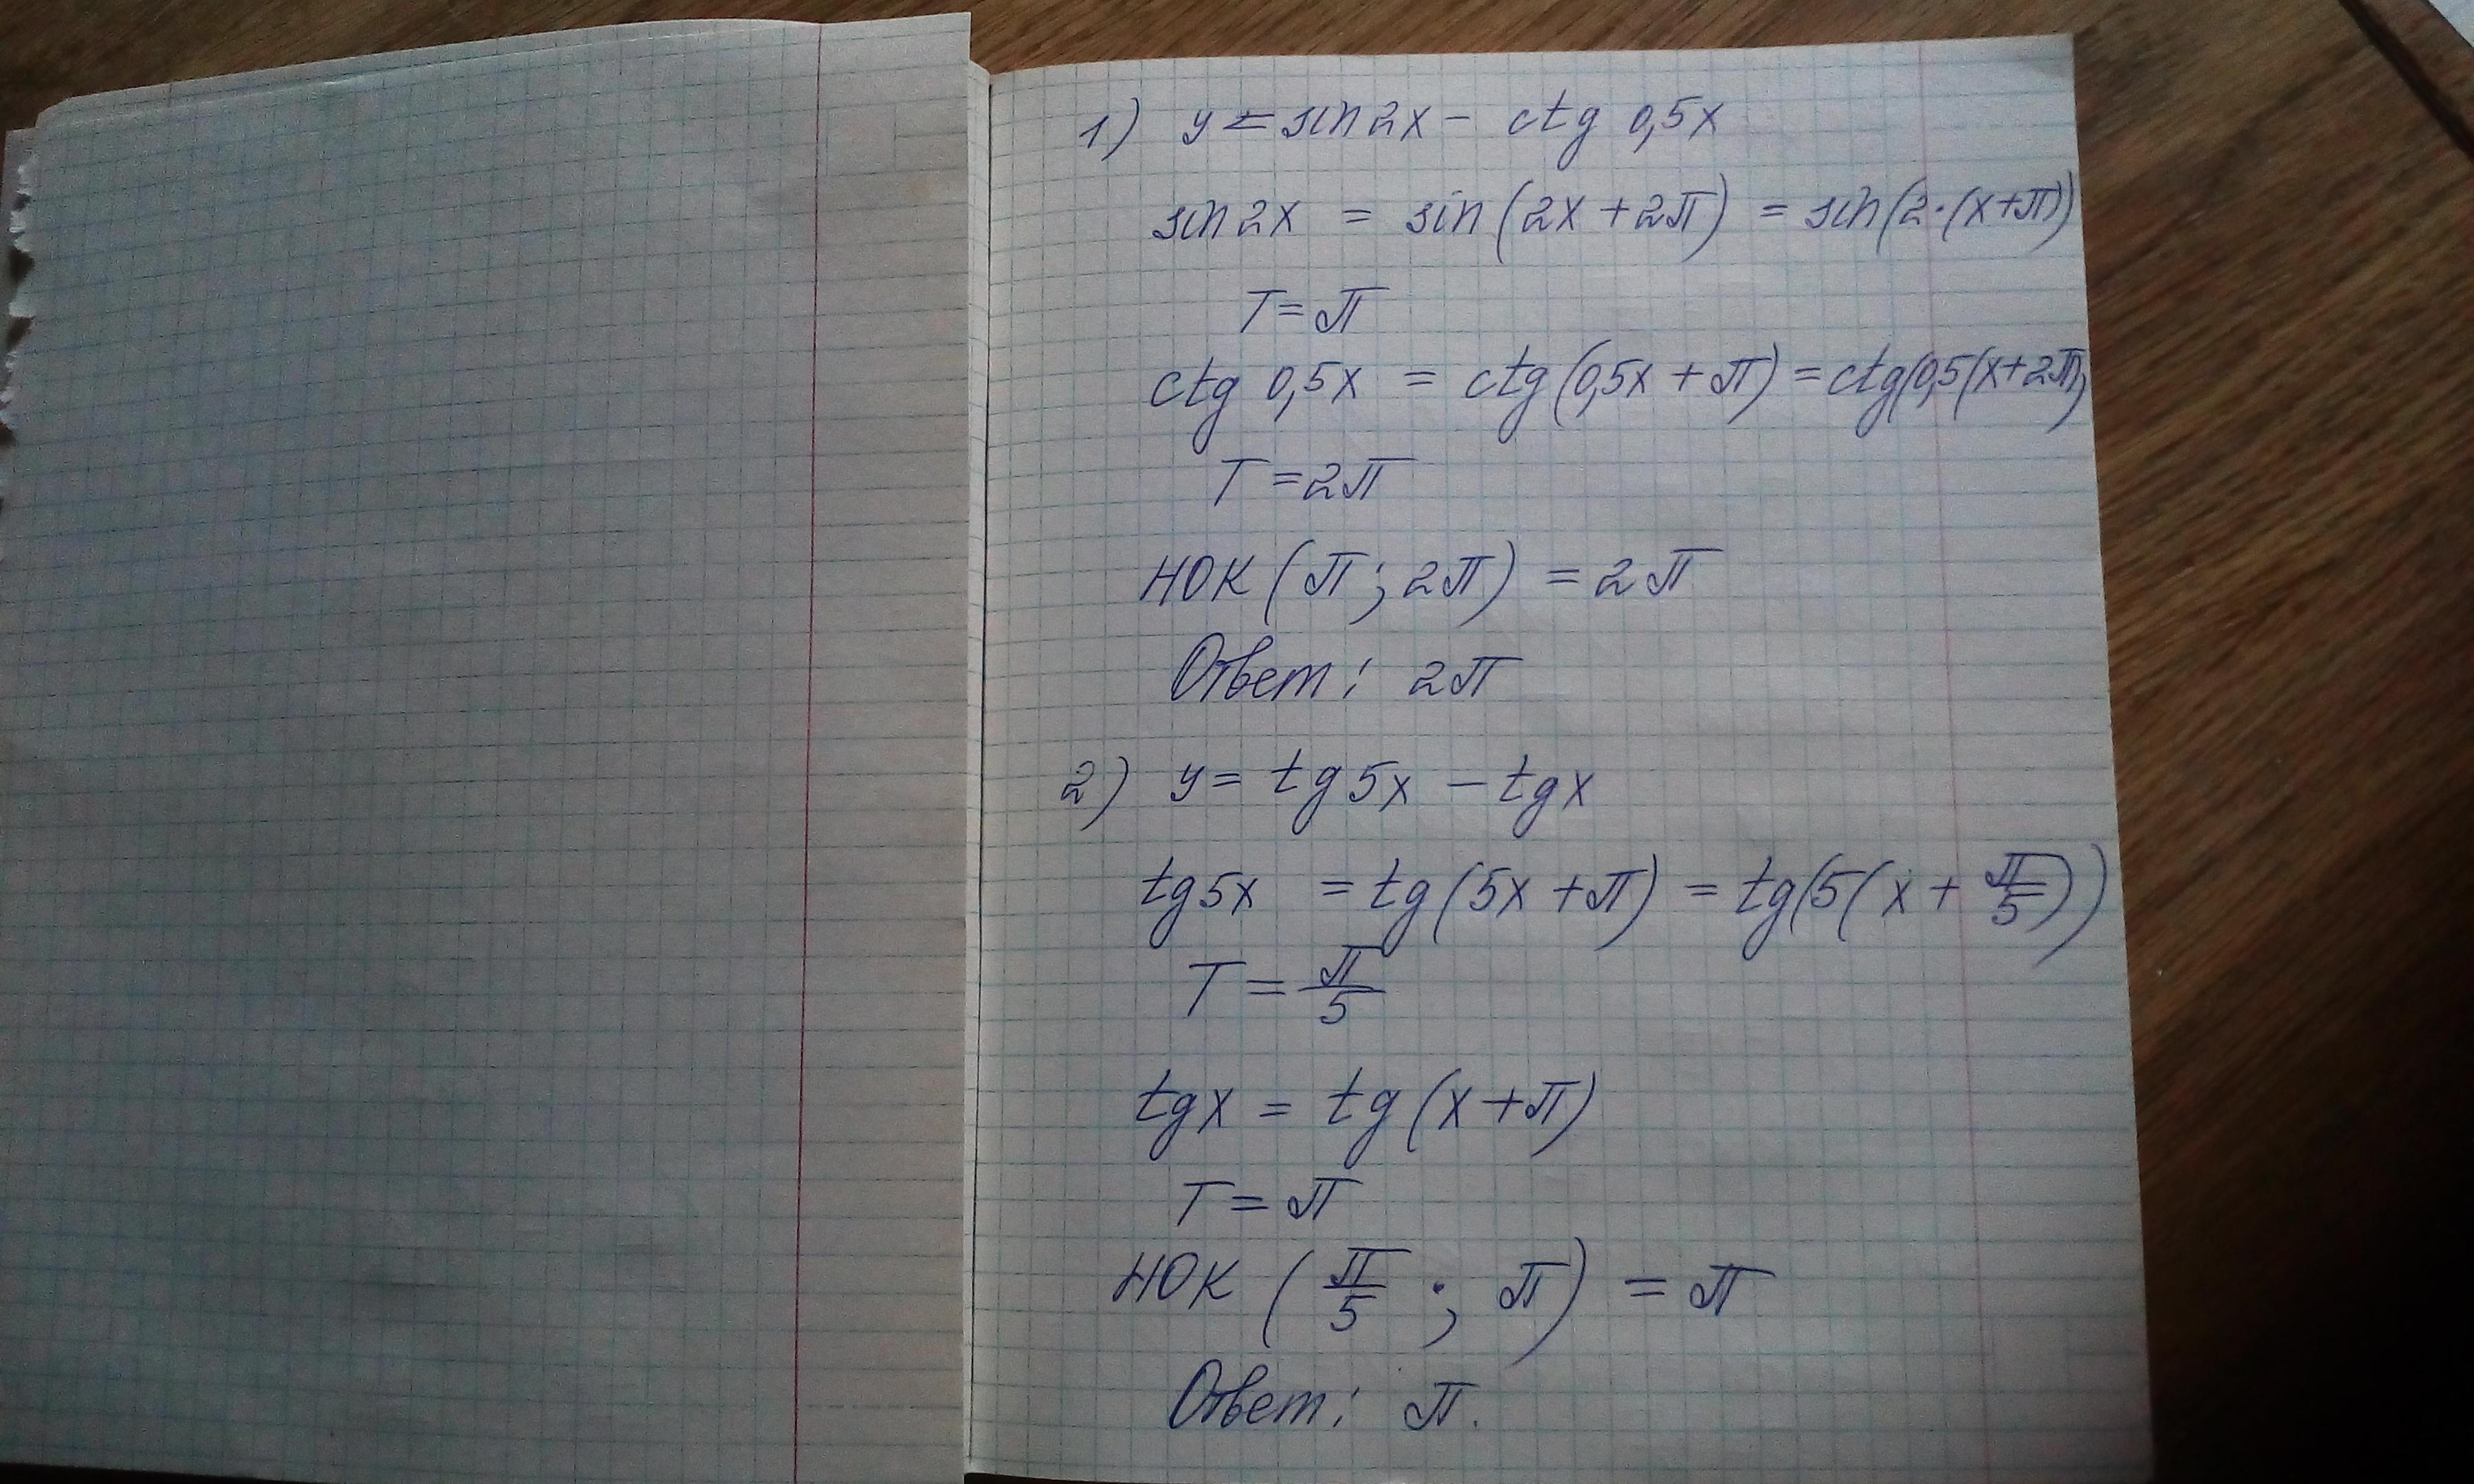 1) y = sin 2x - ctg 0,5x
sin 2x = sin (2x + 2π) = sin(2·(x+π))
T = π
ctg 0,5x = ctg (0,5x + π) = ctg(0,5(x+2π)
T = 2π
НОК (π; 2π) = 2π
Ответ: 2π
2) y = tg 5x - tg x
tg 5x = tg (5x + π) = tg(5(x + π/5))
T = π/5
tg x = tg (x + π)
T = π
НОК (π/5 ; π) = π
Ответ: π.